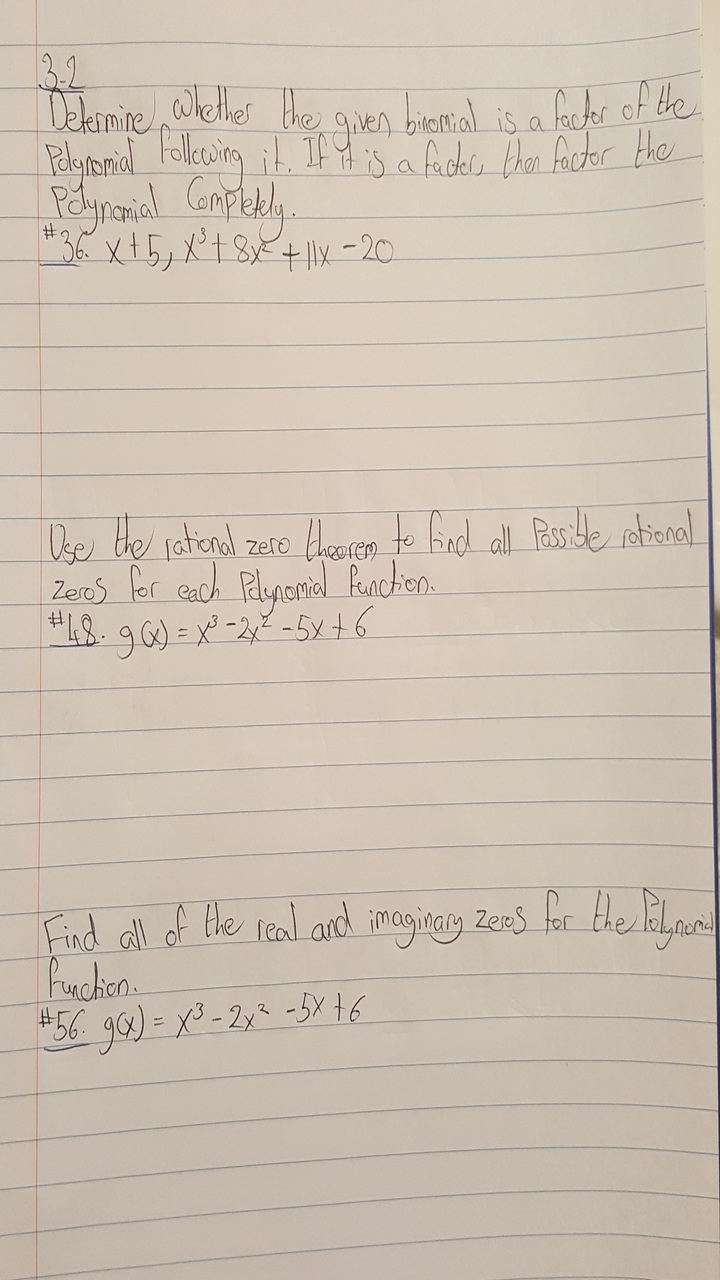 3-2
Determine whether the given binomial is a factor of the
Polynomial Following it. If it is a factor, then factor the
Polynomial Completely.
#36. x+5, x³+8x²+11x-20
Use the rational zero theorem to find all Possible rational
zeros for each Polynomial function.
#48. g(x) = x³-2x²-5x+6
Find all of the real and imaginary zeros for the Polynomial
function.
#56. g(x) = x³-2x²-5x+6